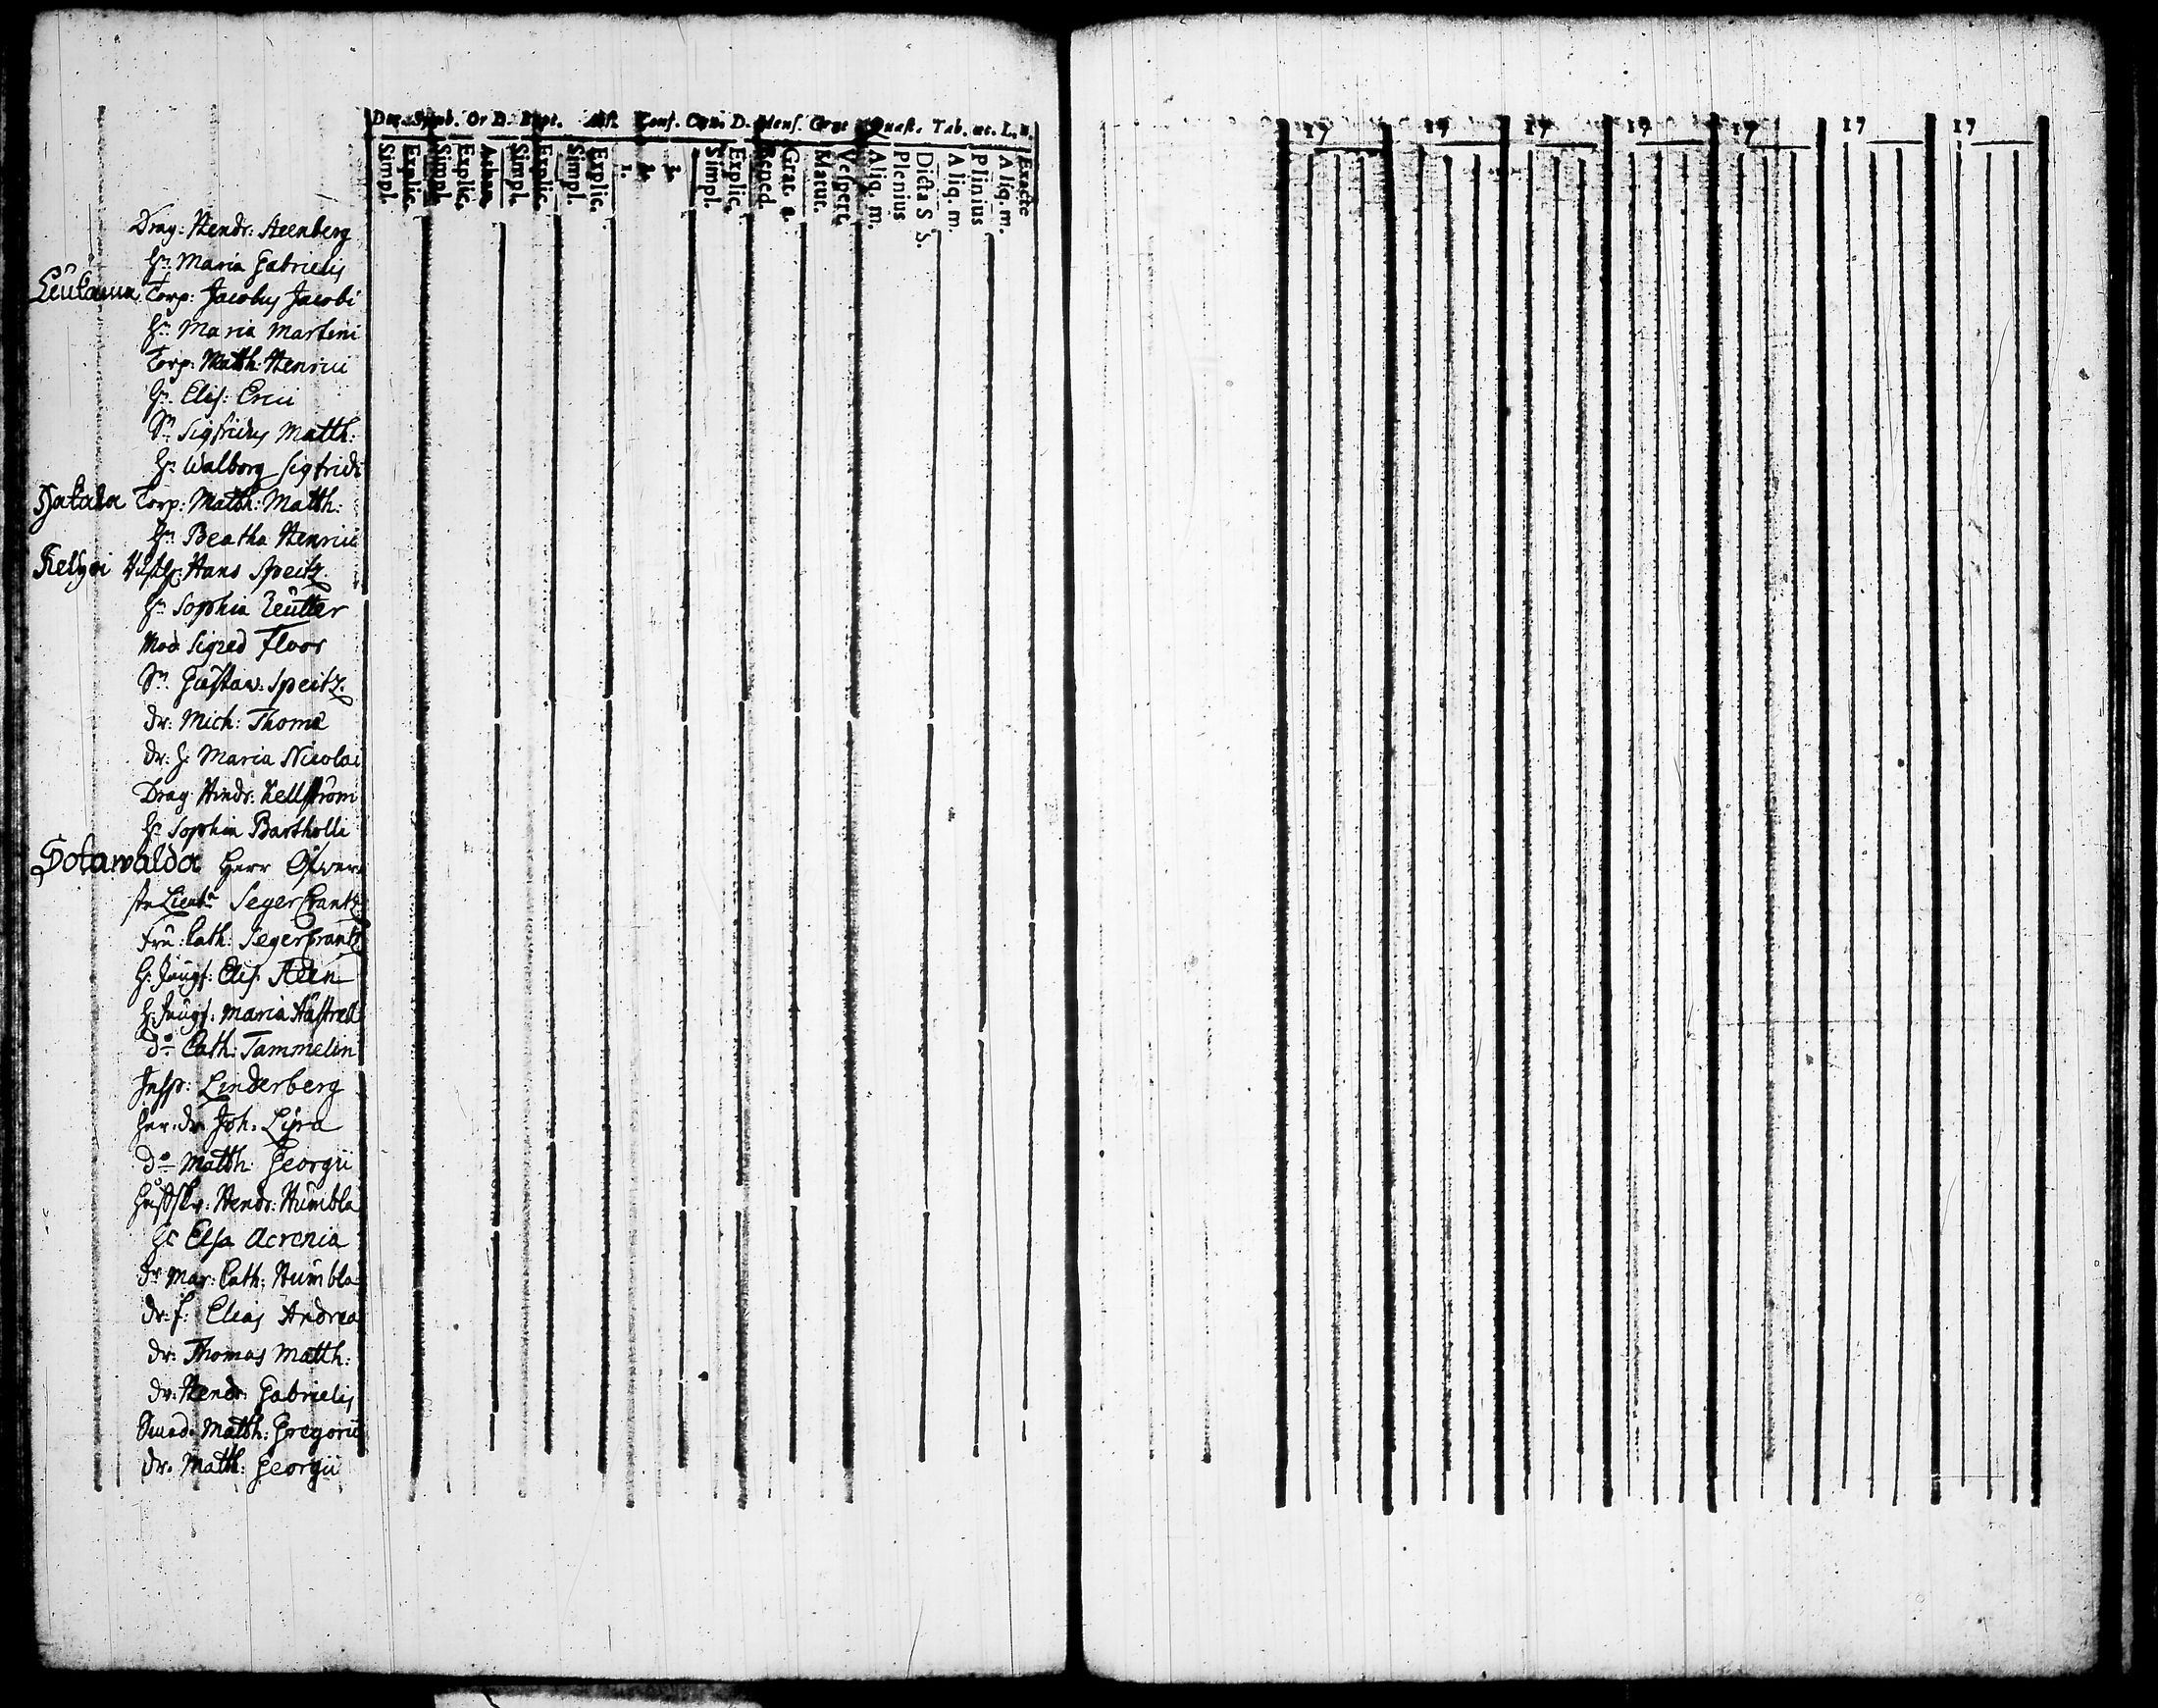 Dec. Symb. Or D. Bapt. Abs. Conf. Cœn. D. Mens. Grat Quæst. Tab. œc. L. n.
Simpl. Explic. Simpl. Explic. Athan. Simpl. Explic. Simpl. Explic. 1. 2. 3. Simpl. Explic. Bened. Grat. a. Matut. Vespert. Aliq. m. Plenius Dicta S S. Aliq. m. Plinius Aliq. m. Exacte
17 17 17 17 17 17 17
Drag: Hendr: Steenberg
H: Maria Gabrielis
Torp: Jacobus Jacobi
H: Maria Martini
Torp: Matth: Henrici
H: Elis: Erici
Sn Sigfridus Matth:
H: Walborg Sigfridi
Torp: Matth: Matth:
H: Beatha Henrici
Hans Speitz
H: Sophia Reutter
Mod: Sigred Floor
Sn Gustav: Speitz
dr: Mich: Thomæ
dr: H: Maria Nicolai
Drag: Hindr: Kellström
H: Sophia Bartholli
Sotawalda Herr Öfwer
ste Lieut: Segercrantz
Fru: Cath: Segercrantz
H: Jungf: Elis Steen
H: Jungf: Maria
do Cath: Tammelin
Insp: Linderberg
dr. Joh. Lijra
do Matth: Georgii
Hendr: Humbla
H: Elsa Acrenia
dr Mar: Cath: Humbla
dr: f: Elias Andreæ
dr: Thomas Matth:
dr: Hendr: Gabrielis
Matth: Gregorii
dr. Matth: Georgii